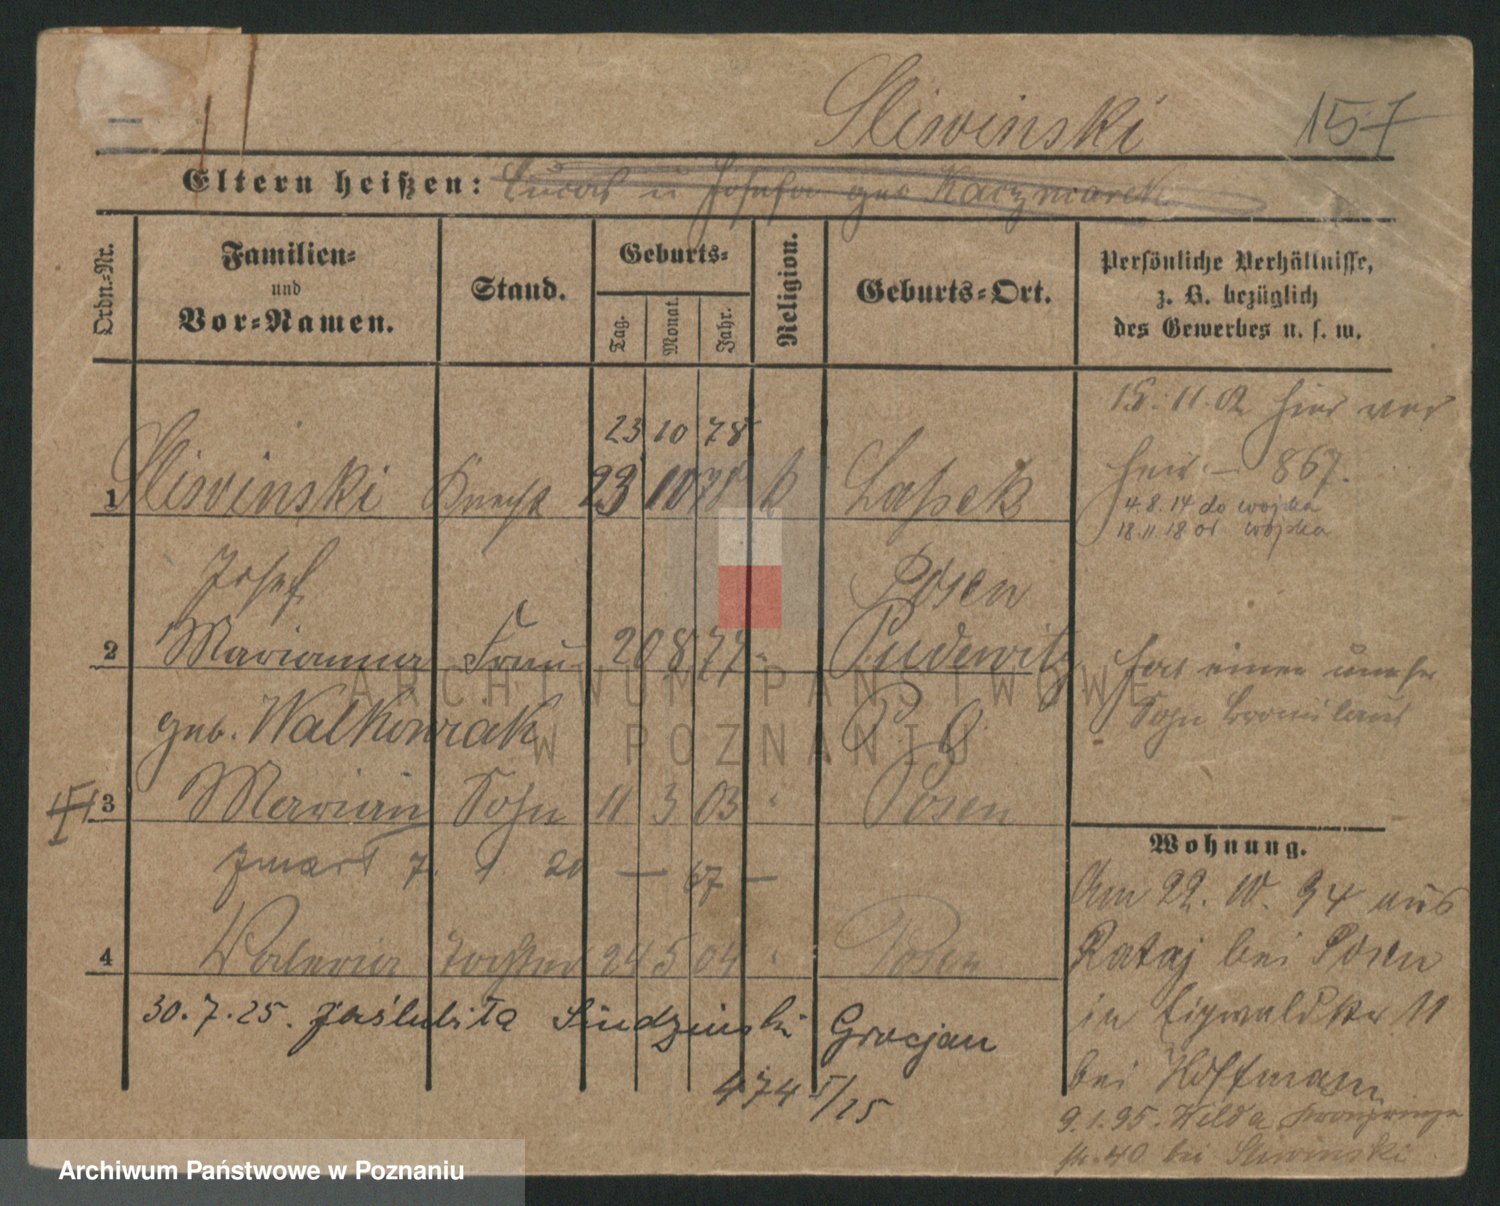 Sliwinski 157
Eltern heißen: Lucas u Josefa geb Kaczmarek
Ordn.-Nr.
Familien- und Vor-Namen.
Stand.
Geburts-
Tag. Monat. Jahr.
Religion.
Geburts-Ort.
Persönliche Verhältnisse,
z. B. bezüglich
des Gewerbes u. s. w.
23 10 78
1 Sliwinski Knecht 23 10 78 k Lassek
Josef Posen
2 Marianna Frau 20 8 79 " Pudewitz
geb. Walkowiak P. O.
3 Marian Sohn 11 3 03 " Posen
zmarł 7. 1 20 — 67 —
4 Valeria Tochter 24 5 04 " Posen
30.7.25. zaślubiła Sindzinski Grocjan
474 I/25
15.11.02 hier vor
hier — 867.
4.8.14 do wojska
18.11.18 od wojska
hat einen unehe
Sohn Bronislaus
Wohnung.
Am 22. 10. 94 aus
Rataj bei Posen
in Eigwaldstr 11
bei Hoffmann
9.1.95. Wilda Kronprinzen
str. 40 bei Sliwinski
ARCHIWUM PAŃSTWOWE
W POZNANIU
Archiwum Państwowe w Poznaniu